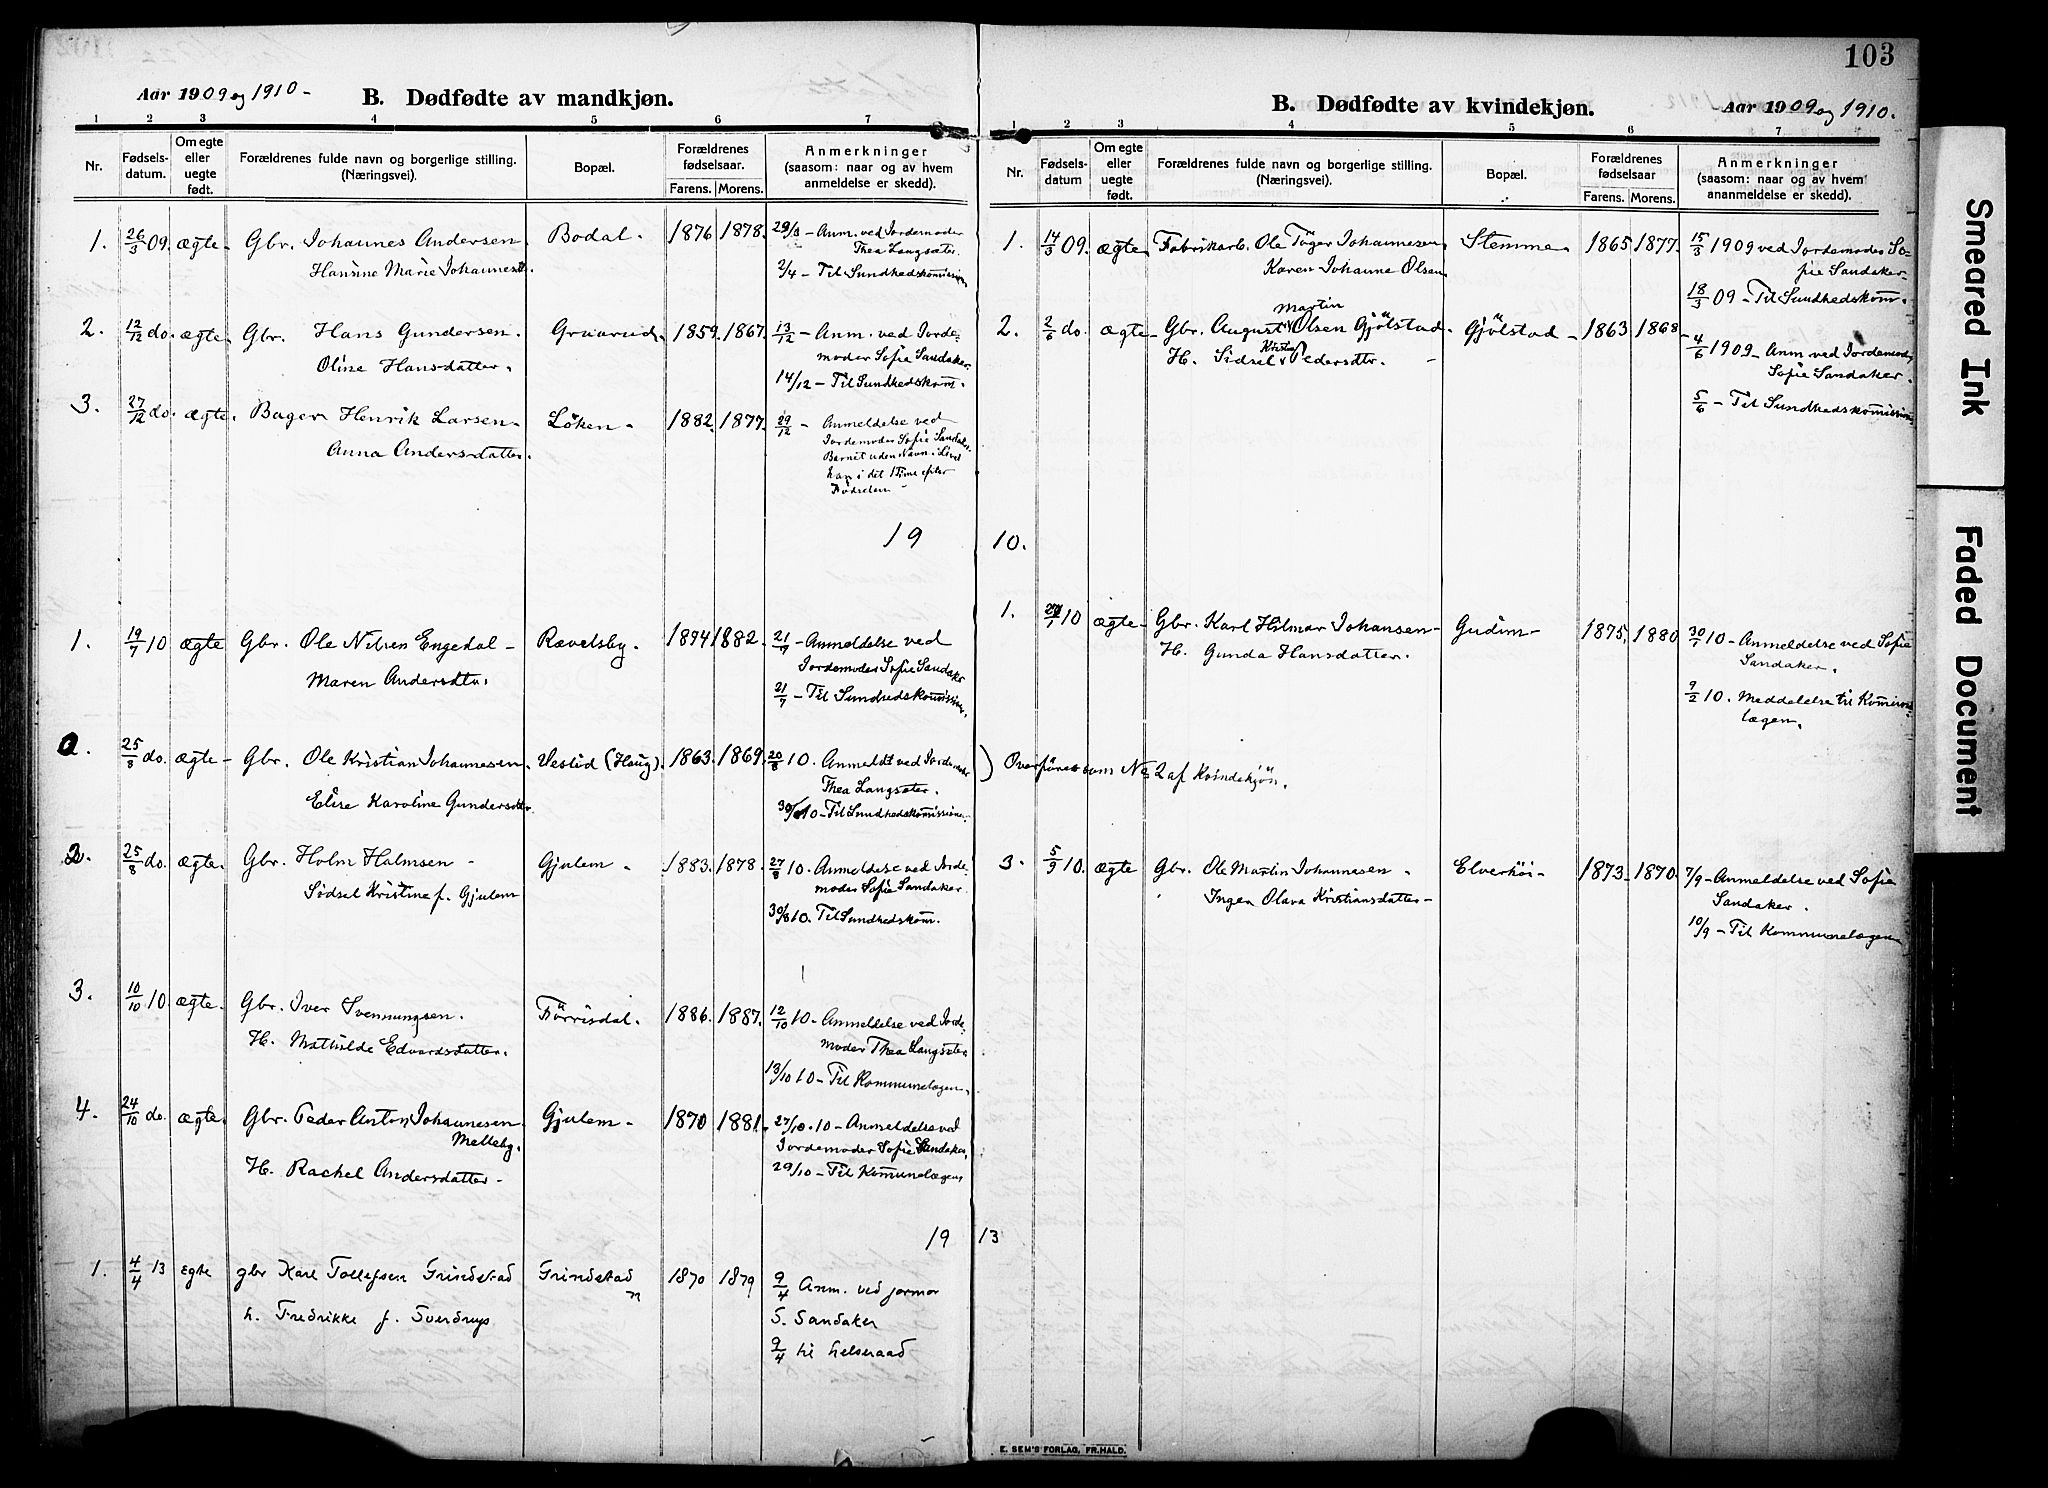 103
Aar 1909 og 1910 -
B. Dødfødte av mandkjøn.
1 2 3 4 5 6 7
Nr.
Fødsels-
datum.
Om egte
eller
uegte
født.
Forældrenes fulde navn og borgerlige stilling.
(Næringsvei).
Bopæl.
Forældrenes
fødselsaar.
Farens. Morens.
Anmerkninger
(saasom: naar og av hvem
anmeldelse er skedd).
1. 26/3 09. ægte - Gbr. Johannes Andersen Bodal - 1876 1878. 29/3 - Anm. ved Jordemoder
Thea Langsæter
Hansine Marie Johannesdtr.
2/4 - Til Sundhedskomissionen
2. 12/12 do. ægte - Gbr. Hans Gundersen. Gruarud - 1859. 1867. 13/12 - Anm. ved Jorde-
moder Sofie Sandaker
Oline Hansdatter.
14/12 - Til Sundhedskom.
3. 27/12 do. ægte. Bager Henrik Larsen - Löken - 1882. 1877. 29/12 - Anmeldelse ved
Jordemoder Sofie Sandaker.
Anna Andersdatter.
Barnet uden Navn. Livet
kan i det 1 Time efter
Fødselen -
19
1. 19/7 10 ægte Gbr. Ole Nilsen Engedal - Rævelsby. 1874 1882. 21/7 - Anmeldelse ved
Jordemoder Sofie Sandaker
Maren Andersdtr.
21/7 - Til Sundhedskommissionen.
2. 25/8 do. ægte - Gbr. Ole Kristian Johannesen. Vestid (Haug). 1863. 1869. 20/8 10. Anmeldt ved Jordemoder
Thea Langsæter.
Elise Karoline Gundersdatter
30/8 10 - Til Sundhedskomissionen.
2. 25/8 do. ægte. Gbr. Holm Halmsen - Gjulem - 1883. 1878. 27/8 10. Anmeldelse ved Jorde-
moder Sofie Sandaker.
Sidsel Kristine f. Gjulem
30/8 10. Til Sundhedskom.
3. 10/10 10 ægte. Gbr. Iver Svennungsen. Förrisdal. 1886. 1887. 12/10 10 - Anmeldelse ved Jorde-
moder Thea Langsæter
H. Mathilde Edvardsdatter.
13/10 10 - Til Kommunelægen.
4. 24/10 do. ægte. Gbr. Peder Anton Johannesen Gjulem - 1870 1881. 27/10.10 - Anmeldelse ved
Melleby. Jordemoder Sofie Sandaker.
H. Rachel Andersdatter -
29/10 - Til Kommunelægen
19
1. 4/4 13 egte gbr Karl Tollefsen Grindstad Grindstad 1870 1879 9/4 Anm. ved jormor
h. Fredrikke f. Sverdrup
S. Sandaker
9/4 til helseraad
B. Dødfødte av kvindekjøn.
Aar 1909 og 1910.
1 2 3 4 5 6 7
Nr.
Fødsels-
datum
Om egte
eller
uegte
født.
Forældrenes fulde navn og borgerlige stilling.
(Næringsvei).
Bopæl.
Forældrenes
fødselsaar
Farens. Morens.
Anmerkninger
(saasom: naar og av hvem
ananmeldelse er skedd).
1. 14/3 09. ægte Fabrikarb. Ole Töger Johannesen Stemme 1865 1877. 15/3 1909 ved Jordemoder So-
fie Sandaker -
Karen Johanne Olsen
18/3 09 - Til Sundhedskom.
Martin
2. 2/6 do. ægte Gbr. August Olsen Gjölstad. Gjölstad - 1863 1868 -
4/6 1909 - Anm ved Jordemoder
Sofie Sandaker.
H. Sidsel Pedersdtr. -
5/6 - Til Sundhedskommissionen
10.
1. 10 ægte - Gbr. Karl Hilmar Johansen - Gudim - 1875. 1880 30/1 10 - Anmeldelse ved Sofie
Sandaker.
H. Gunda Hansdatter.
9/2 10. Meddelelse til Komune-
lægen.
) Overføres som No 2 af Kvindekjön.
3. 5/9 10. ægte Gbr. Ole Martin Johannesen - Elverhöi - 1873 - 1870. 7/9 - Anmeldelse ved Sofie
Sandaker.
Inger Olava Kristiansdatter -
10/9 - Til Kommunelægen
13
E. SEM'S FORLAG, FR.HALD.
Smeared Ink
Faded Document